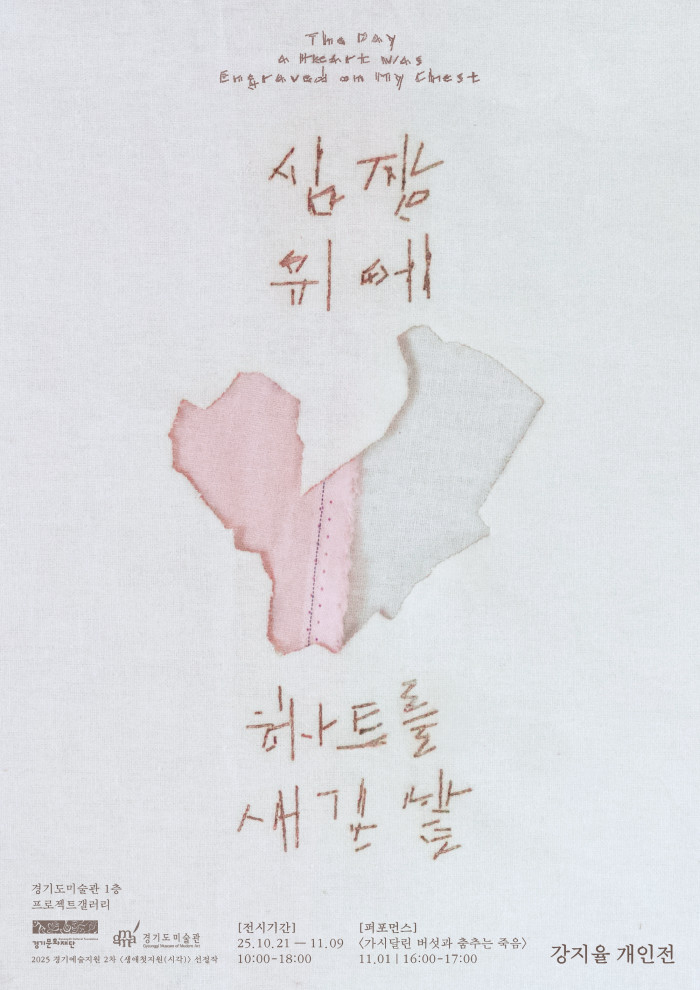 The Day
a Heart was
Engraved on My Chest
심장
위에
하트를
새긴
경기도미술관 1층
프로젝트갤러리
경기문화재단
경기도미술관
Gyeonggi Museum of Modern Art
2025 경기예술지원 2차 〈생애첫지원(시각)〉 선정작
[전시기간]
25.10.21 — 11.09
10:00-18:00
[퍼포먼스]
〈가시달린 버섯과 춤추는 죽음〉
11.01 | 16:00-17:00
강지율 개인전